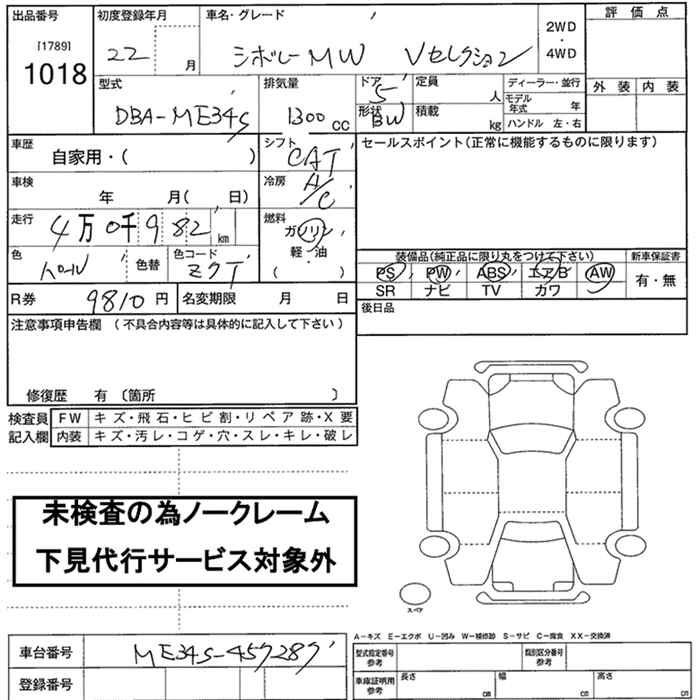 出品番号 初度登録年月 車名・グレード 評価点
[1789] 22 月 シボレーMW Vセレクション 2WD・4WD
1018
型式 排気量 ドア 定員 ディーラー・並行 外装 内装
DBA-ME34S 1300 CC 5 人 モデル年式 年
形状 BW 積載 kg ハンドル 左・右
車歴 自家用・( ) シフト CAT セールスポイント(正常に機能するものに限ります)
車検 年 月( 日) 冷房 A/C
走行 4万0千982 km 燃料 ガソリン
軽・油
( )
装備品(純正品に限り丸をつけて下さい) 新車保証書
色 色替 色コード PS PW ABS エアB AW 有・無
SR ナビ TV カワ
R券 9810円 名変期限 月 日 後日品
注意事項申告欄 (不具合内容等は具体的に記入して下さい)
修復歴 有 〔箇所 〕
検査員 FW キズ・飛石・ヒビ割・リペア跡・X要
記入欄 内装 キズ・汚レ・コゲ・穴・スレ・キレ・破レ
未検査の為ノークレーム
下見代行サービス対象外
スペア
A-キズ E-エクボ U-凹み W-補修跡 S-サビ C-腐食 XX-交換済
車台番号 ME34S-459289 型式指定番号 参考 類別区分番号 参考
登録番号 車庫証明用 参考 長さ cm 幅 cm 高さ cm